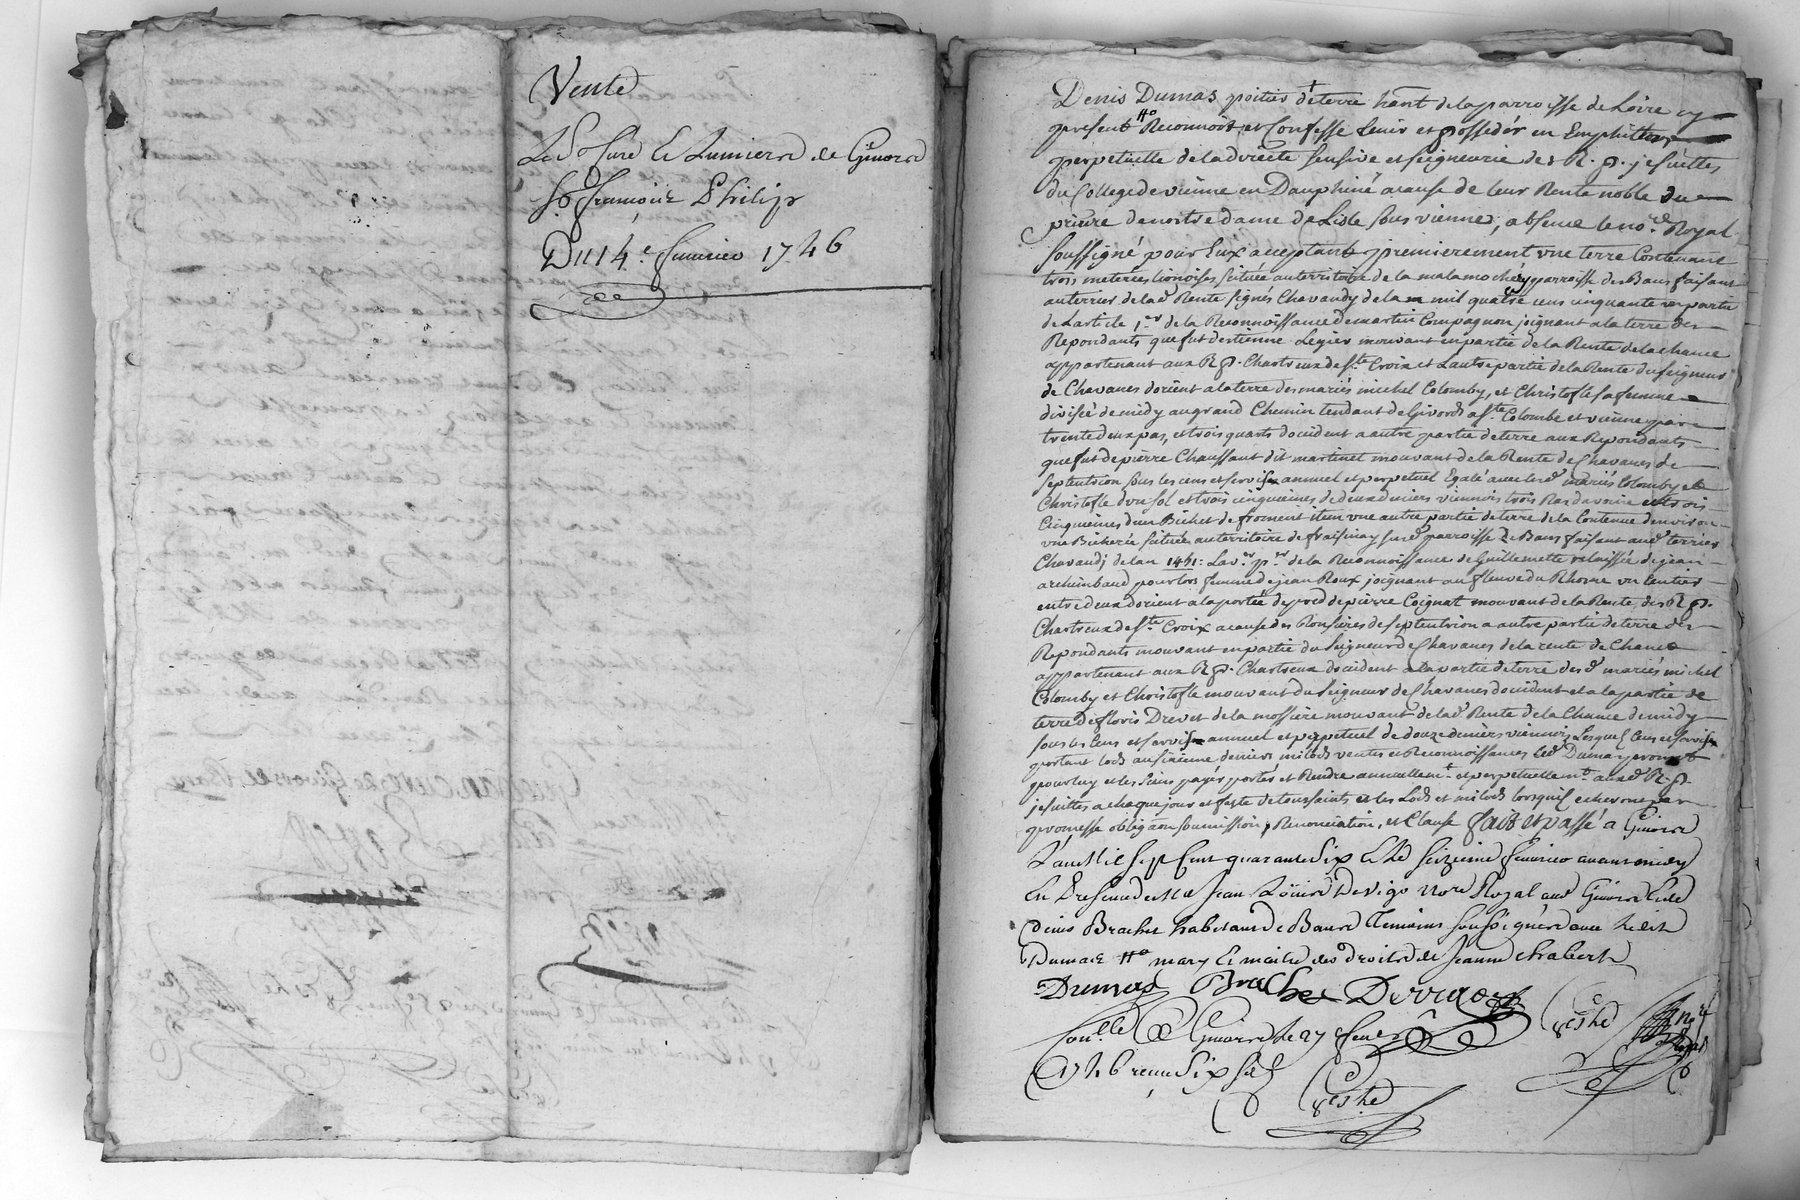 Vente
Le Sr Curé et Lumiere de Givors
Sr François Philip
Du 14e fevrier 1746
Denis Dumas poitier de terre hant de la parroisse de Loire cy
present Reconnoit et Confesse tenir et posseder en Emphiteose
perpetuelle de la directe sensive et seigneurie des R. P. jesuittes
du College de vienne en Dauphiné a cause de leur Rente noble du
prieuré de nostre dame de Lisle sous vienne, absens le nore Royal
soussigné pour Eux acceptant premierement une terre Contenant
trois meterées lionoises située au territoire de la malamoche parroisse de Bans faisant
au terrier de lad Rente signés Chavandy de la mil quatre cens cinquante un partie
de Larticle 1er de la Reconnoissance de martin Compagnon joignant a la terre des
Repondants que fut destienne Legier mouvant en partie de la Rente de la chance
appartenant aux R P. Chartreux de Ste Croix et Lautre partie de la Rente du seigneur
de Chavanes dorient a la terre des mariés michel Colomby, et Christofle sa femme
divisée de midy au grand Chemin tendant de Givors a Ste Colombe et vienne par
trente deux pas, et trois quarts docident a autre partie de terre aux Repondants
que fut de pierre Chaussant dit martinet mouvant de la Rente de Chavanes de
septentrion sous les cens et servis annuel et perpetuel Egalé avec les d mariés Colomby et
Christofle dun sol et trois cinquiemes de deux deniers viennois trois Ras davoine et trois
Cinquiemes dun Bichet de froment item une autre partie de terre de la Contenue denviron
une Bicherée située au territoire de fraisinay susd parroisse de Bans faisant aud terrier
Chavandi de lan 1451: La de la Reconnoissance de Guillemette relaissée de jean
archimbaud pour lors femme de jean Roux joignant au fleuve du Rhosne un sentier
entre deux dorient a la portée de pred de pierre Coignat mouvant de la Rente des R P.
Chartreux de Ste Croix a cause des Ronsieres de septentrion a autre partie de terre des
Repondants mouvant en partie du seigneur de Chavanes de la rente de Chance
appartenant aux R P. Chartreux docident a la partie de terre des d mariés michel
Colomby et Christofle mouvant du seigneur de Chavanes docident et a la partie de
terre de floris Drevet de la mossiere mouvant de lad Rente de la Chance de midy
sous les Cens et servis annuel et perpetuel de douze deniers viennois Lesquels Cens et servis
portant lods au sixieme denier milods ventes et Reconnoissances led Dumas promet
pour luy et les siens payer porter et Rendre annuellemt et perpetuellemt auxd R. P.
jesuittes a chaque jour et feste de toussaints et les Lods et milods lorsquil echerront par
promesse obligaon soumission, Renonciation, et Clause fait et passé a Givors
Lan Mil sept Cent quarante six et le seizieme fevrier avant midy
En Presence de Me Jean Devigo Nore Royal aud Givors et de
Denis Brachet habitant de Bans Temoins soussignés avec ledit
Dumas mary et maitre des droits de Jeanne chabert
Dumas Brachet
Con.llé a Givors le 27 fevr
1746 receu Six sols